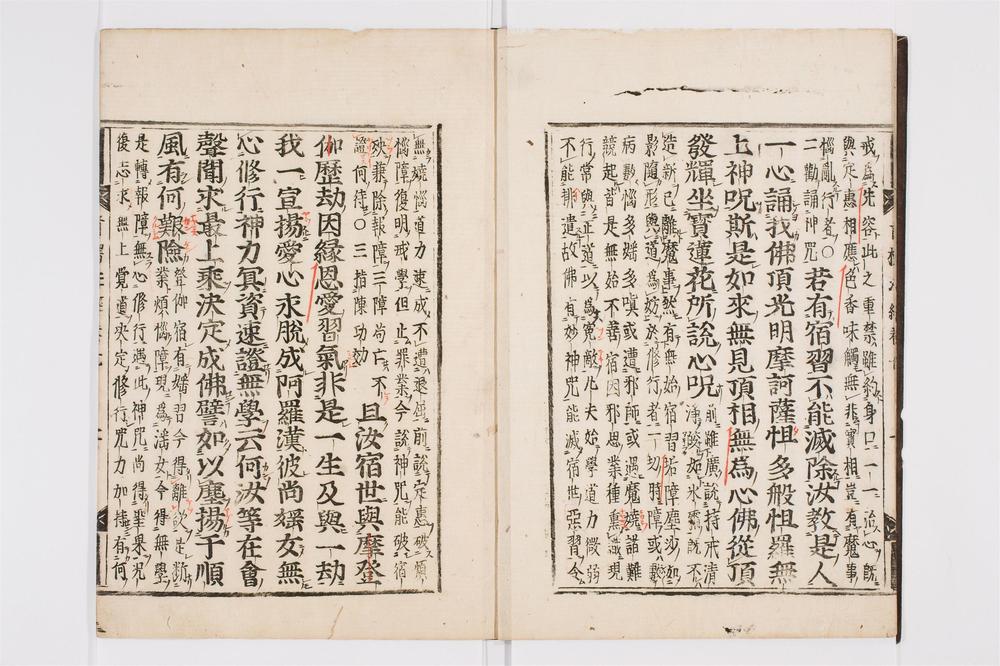 戒爲先容此之重禁雖約身口一一治心旣
與定惠相應色香味觸無非實相豈有魔事
惱亂行者〇
二勸誦神咒
若有宿習不能滅除汝教是人
一心誦我佛頂光明摩訶薩怛多般怛羅無
上神呪斯是如來無見頂相無爲心佛從頂
發輝坐寶蓮花所說心呪
前雖廣說持戒清
淨皎如氷霜旣不
造新已離魔事然有無始宿習垢障塵沙如
影隨形與道爲妨於修行者一切時障或
病數惱多婬多嗔或遭邪師或遇魔嬈諸難
競起皆是無始不善宿因邪思業種熏識現
行常與正道以爲寃敵凡夫始學道力微弱
不能排遣故佛有妙神咒能滅宿世惡習令
無嬈惱道力速成不遭退屈前說定惠破煩
惱障復明戒學但止罪業今說神咒能破宿
殃兼除報障三障尚亡不
證何待〇三指陳功効
且汝宿世與摩登
伽歷劫因緣恩愛習氣非是一生及與一劫
我一宣揚愛心永脫成阿羅漢彼尚婬女無
心修行神力冥資速證無學云何汝等在會
聲聞求最上乘決定成佛譬如以塵揚于順
風有何艱險
聲仰宿有婬習今得離欲是斷
業煩惱障現爲婬女今得無學
是轉報障無心修行遇此神咒尚得聖果况
復志求無上覺道决定修行咒力加持有何